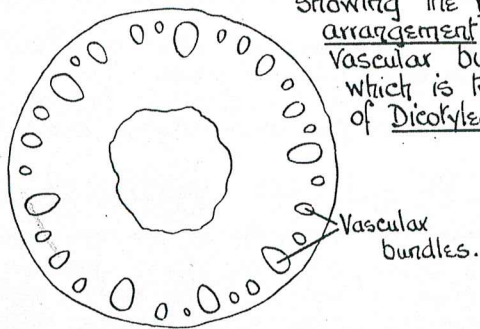 showing the
arrangement
Vascular bu
which is t
of Dicotyle
Vascular
bundles.